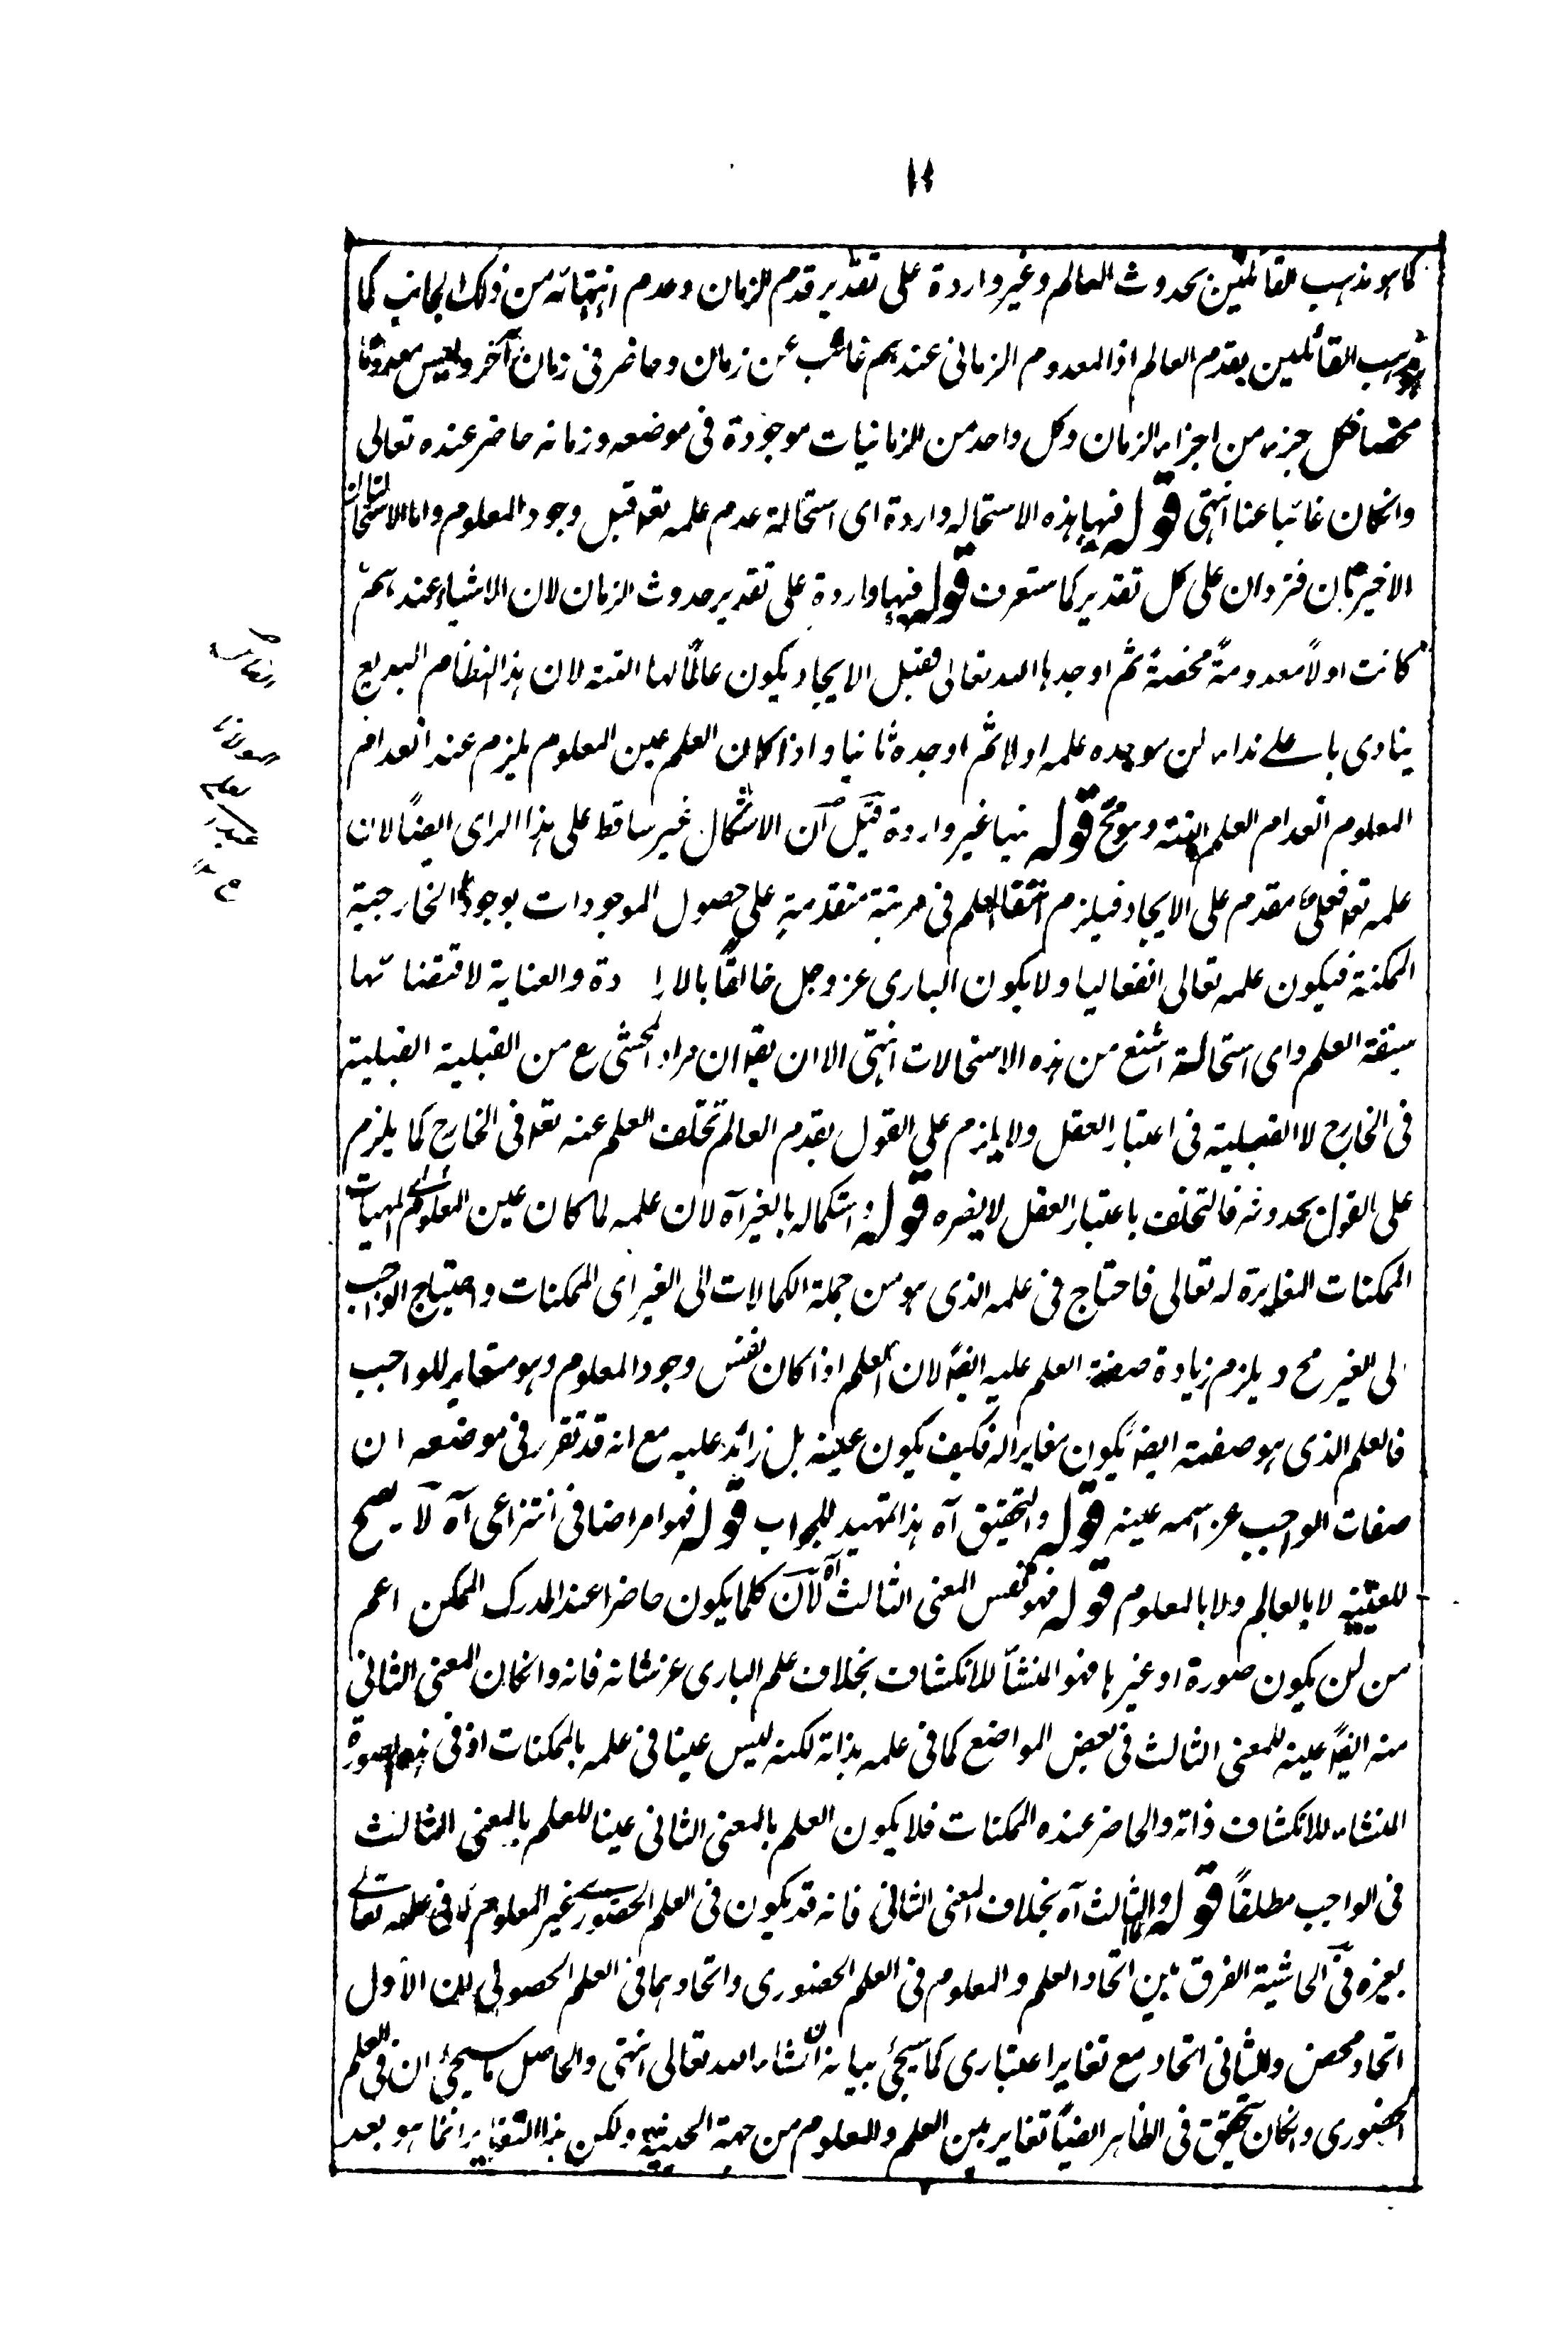 كما هو مذهب القائلين بحدوث العالم وغير واردة على تقدير قدم الزمان وعدم انتهائه من ذلك الجانب كما
هو مذهب القائلين بقدم العالم اذ المعدوم الزمانى عندهم غائب عن زمان وحاضر فى زمان آخر وليس معدومًا
محضا فكل جزء من اجزاء الزمان وكل واحد من الزمانيات موجودة فى موضعه وزمانه حاضر عنده تعالى
وانكان غائبا عنا انتهى قوله فيها هذه الاستحالة واردة اى استحالة عدم علمه تعه قبل وجود المعلوم واما الاستحالتان
الاخيرتان فتردان على كل تقدير كما ستعرف قوله فيها واردة على تقدير حدوث الزمان لان الاشياء عندهم
كانت اولاً معدومةً محضةً ثم اوجدها الله تعالى فقبل الايجاد يكون عالمًا لها البتة لان هذا النظام البديع
ينادى باعلے نداء لن موجده علمه اولا ثم اوجده ثانيا واذا كان العلم عين المعلوم يلزم عند انعدام
المعلوم انعدام العلم البتة وهو مح قوله فيها غير واردة قيل ان الاشكال غير ساقط على هذا الراى ايضًا لان
علمه تعه فعلى مقدم على الايجاد فيلزم انتفاء العلم فى مرتبة متقدمة على حصول الموجودات بوجودها الخارجية
الممكنة فيكون علمه تعالى انفعاليا ولا يكون البارى عز وجل خالقًا بالارادة والعناية لاقتضائها
سبقة العلم واى استحالة اشنع من هذه الاستحالات انتهى الا ان يقه ان مراد المحشى رع من القبلية القبلية
فى الخارج لا القبلية فى اعتبار العقل ولا يلزم على القول بقدم العالم تخلف العلم عنه تعه فى الخارج كما يلزم
على القول بحدوثه فالتخلف باعتبار العقل لا يضره قوله واستكماله بالغير آه لان علمه لما كان عين المعلوم اے المهيات
الممكنات المغايرة له تعالى فاحتاج فى علمه الذى هو من جملة الكمالات الى الغير اى الممكنات واحتياج الواجب
الى الغير مح ويلزم زيادة صفة العلم عليه ايضًا لان العلم اذا كان نفس وجود المعلوم وهو متغاير للواجب
فالعلم الذى هو صفته ايضًا يكون مغايرا له فكيف يكون عينه بل زائد عليه مع انه قد تقرر فى موضعه ان
صفات الواجب عز اسمه عينه قوله والتحقيق آه هذا تمهيد للجواب قوله فهو امر اضافى انتزاعى آه لا يصح
للعينية لا بالعالم ولا بالمعلوم قوله فهو نفس المعنى الثالث آه لان كلما يكون حاضرا عند المدرك الممكن اعم
من لن يكون صورة او غيرها فهو المنشأ للانكشاف بخلاف علم البارى عز شانه فانه وانكان المعنى الثانى
منه ايضًا عينه للمعنى الثالث فى بعض المواضع كما فى علمه بذاته لكنه ليس عينا فى علمه بالممكنات اذ فى هذه الصورة
المنشاء للانكشاف ذاته والحاضر عنده الممكنات فلا يكون العلم بالمعنى الثانى عينا للعلم بالمعنى الثالث
فى الواجب مطلقًا قوله والثالث آه بخلاف المعنى الثانى فانه قد يكون فى العلم الحضورے غير المعلوم كما فى علمه تعالے
بغيره فى الحاشية الفرق بين اتحاد العلم والمعلوم فى العلم الحضورى واتحادهما فى العلم الحصولى لان الاول
اتحاد محض والثانى اتحاد مع تغاير اعتبارى كما سيجئ بيانه انشاء الله تعالى انتهى والحاصل ما سيجئ ان فى العلم
الحضورى وانكان تحقق فى الظاهر ايضًا تغاير بين العلم والمعلوم من جهة الحيثية ولكن هذا التغاير انما هو بعد